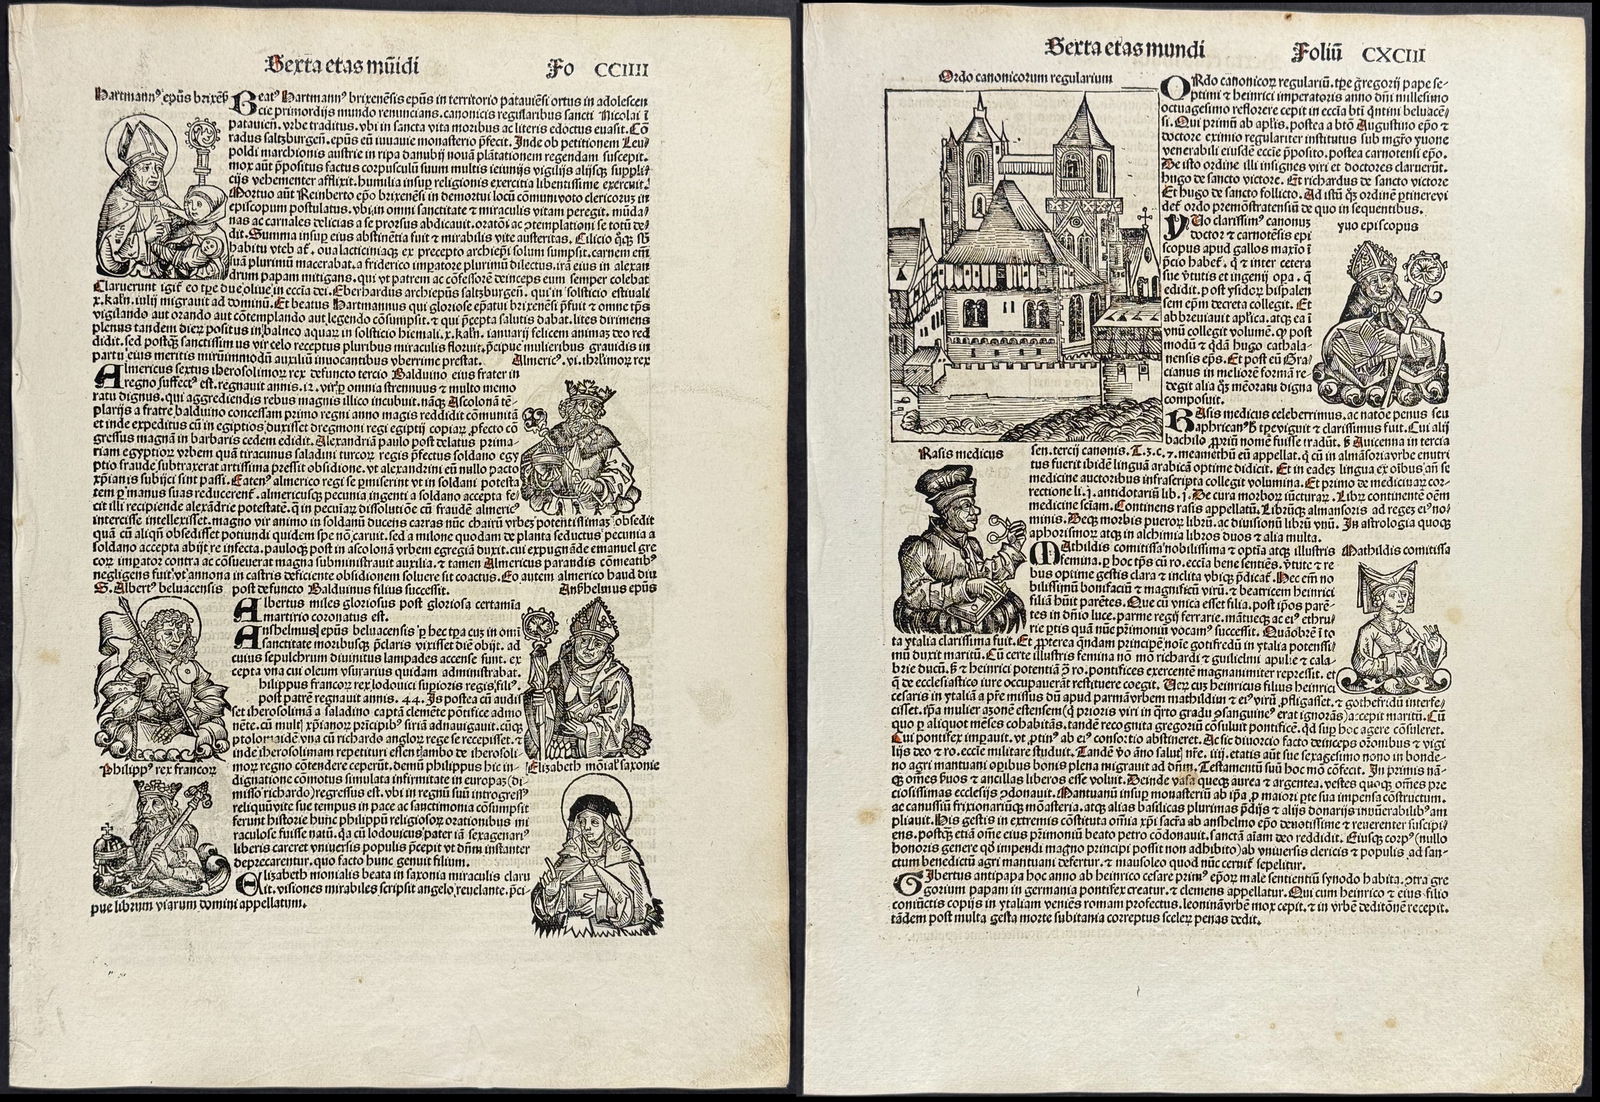 Sexta etas mūidi
Fo CCIIII
Hartmannꝰ epūs brixeñ
Beatꝰ Hartmannꝰ brixenēsis epūs in territorio patauiēsi ortus in adolescen
cie primordijs mundo renuncians. canonicis regularibus sancti Nicolai ī
patauieñ. vrbe traditus. vbi in sancta vita moribus ac literis edoctus euasit. Cō
radus saltzburgeñ. epūs eū iuuauie monasterio p̄fecit. Inde ob petitionem Leu/
poldi marchionis austrie in ripa danubij nouā plātationem regendam suscepit.
mox aūt p̄positus factus corpusculū suum multis ieiunijs vigilijs alijsqʒ suppli/
cijs vehementer afflixit. humilia insuꝑ religionis exercitia libentissime exercuit.
Mortuo aūt Reinberto ep̄o brixinēsi in demortui locū cōmuni voto clericoꝝ in
episcopum postulatus. vbi in omni sanctitate ⁊ miraculis vitam peregit. mūda/
nas ac carnales delicias a se prorsus abdicauit. oratōi ac ɔtemplationi se totū de/
dit. Summa insuꝑ eius abstinētia fuit ⁊ mirabilis vite austeritas. Cilicio q̄qʒ sb̄
habitu vteb at̄. oua lacticiniaqʒ ex precepto archiep̄i solum sumpsit. carnem em̄
suā plurimū macerabat. a friderico imp̄atore plurimū dilectus. irā eius in alexan
drum papam mitigans. qui vt patrem ac cōfessorē deinceps eum semper colebat
Claruerunt igit̄ eo tp̄e due oliue in ecc̄ia dei. Eberhardus archiep̄us saltzburgeñ. qui in solsticio estiuali
x. kal̄n. iulij migrauit ad dominū. Et beatus Hartmannus qui gloriose ep̄atui brixinē p̄fuit ⁊ omne tp̄s
vigilando aut orando aut cōtemplando aut legendo cōsumpsit. ⁊ qui p̄cepta salutis dabat. lites dirimens
plenus tandem dieꝝ positus in balneo aquaꝝ in solsticio hiemali. x. kal̄n. ianuarij felicem animaꝫ deo red
didit. sed postqʒ sanctissimus vir celo receptus pluribus miraculis floruit. p̄cipue mulieribus grauidis in
partu eius meritis mirūimmodū auxiliū inuocantibus vberrime prestat.
Almericꝰ. vi. ihrl̄imoꝝ rex
Almericus sextus iherosolimoꝝ rex defuncto tercio Balduino eius frater in
regno suffectꝰ est. regnauit annis. 12. vir ꝑ omnia strennuus ⁊ multo memo
ratu dignus. qui aggrediendis rebus magnis illico incubuit. nāqʒ Ascolonā tē/
plarijs a fratre balduino concessam primo regni anno magis reddidit cōmunitā
et inde expeditus cū in egiptios duxisset dregmoni regi egiptij copiaꝝ p̄fecto cō
gressus magnā in barbaris cedem edidit. Alexandriā paulo post delatus prima/
riam egyptioꝝ vrbem quā tiracunus saladini turcoꝝ regis p̄fectus soldano egy
ptio fraude subtraxerat artissima pressit obsidione. vt alexandrini eū nullo pacto
xp̄ianis subijci sint passi. Eatenꝰ almerico regi se ꝓmiserint vt in soldani potesta
tem ꝑ manus suas reducerent̄. almericusqʒ pecunia ingenti a soldano accepta fe/
cit illi recipiende alexādrie potestatē. q̄ in pecuniaꝝ dissolutiōe cū fraudē almericꝰ
intercisse intellexisset. magno vir animo in soldanū ducens carras nūc chairū vrbeꝫ potentissimaꝫ obsedit
quā cū aliqn̄ obsedisset potiundi quidem spe nō caruit. sed a milone quodam de planta seductus pecunia a
soldano accepta abijt re infecta. pauloqʒ post in ascolonā vrbem egregiā duxit. cui expugnāde emanuel gre
coꝝ imꝑator contra ac cōsueuerat magna subministrauit auxilia. ⁊ tamen Almericus parandis cōmeatibꝰ
negligens fuit vt annona in castris deficiente obsidionem soluere sit coactus. Eo autem almerico haud diu
post defuncto Balduinus filius successit.
S. Albertꝰ beluacensis
Anßhelmus epūs
Albertus miles gloriosus post gloriosa certamia
martirio coronatus est.
Anßhelmus epūs beluacensis ꝑ hec tp̄a cuꝫ in omi
sanctitate moribusqʒ p̄claris vixisset diē obijt. ad
cuius sepulchrum diuinitus lampades accense sunt. ex
cepta vna cui oleum vsurarius quidam administrabat.
hilippus francoꝝ rex lodouici suꝑioris regis filiꝰ.
post patrē regnauit annis. 44. Is postea cū audis
set iherosolimā a saladino captā clemēte pontifice admo
nēte. cū mult̄ xp̄ianoꝝ prīcipibꝰ siriā adnauigauit. eiqʒ
ptolomaidē vna cū richardo angloꝝ rege se recepisset. ⁊
inde iherosolimam repetituri essent ambo de iherosoli
moꝝ regno cōtendere ceperūt. demū philippus hic in/
dignatione cōmotus simulata infirmitate in europaꝫ (di/
misso richardo) regressus est. vbi in regnū suū introgressꝰ
reliquū vite sue tempus in pace ac sanctimonia cōsūmpsit
ferunt historie hunc philippū religiosoꝝ orationibus mi
raculose fuisse natū. q̄a cū lodouicus pater iā sexagenariꝰ
liberis careret vniuersis populis p̄cepit vt dn̄m instanter
deprecarentur. quo facto hunc genuit filium.
Philippꝰ rex francoꝝ
Elizabeth mōial̄ saxonie
Elizabeth monialis beata in saxonia miraculis claru
it. visiones mirabiles scripsit angelo reuelante. p̄ci/
pue librum viarum domini appellatum.
Sexta etas mundi
Foliū CXCIII
Ordo canonicorum regularium
ORdo canonicoꝝ regulariū. tp̄e gregorij pape se/
ptimi ⁊ heinrici imperatoris anno dn̄i millesimo
octuagesimo reflorere cepit in ecc̄ia bt̄i qntini beluacē/
si. Qui primū ab apl̄is. postea a btō Augustino ep̄o ⁊
doctore eximio regulariter institutus sub mgr̄o yuone
venerabili eiusdē eccl̄e p̄posito. postea carnotensi ep̄o.
De isto ordine illi insignes viri et doctores claruerūt.
hugo de sancto victore. Et richardus de sancto victore
Et hugo de sancto folleto. Ad istū q̄ꝫ ordinē ꝑtinere vi
det̄ ordo premōstratensiū de quo in sequentibus.
yuo episcopus
Yuo clarissimꝰ canonuꝫ
doctor ⁊ carnotēsis epi
scopus apud gallos maxīo ī
p̄cio habet̄. q̄ ⁊ inter cetera
sue v̓tutis et ingenij opa. q̄
edidit. post ysidoꝝ hispalen
sem ep̄m decreta collegit. Et
abbreuiauit aplīca. atqʒ ea ī
vnū collegit volumē. q̄ post
modū ⁊ q̄dā hugo cathala/
nensis ep̄s. Et post eū Gra/
cianus in meliorē formā re/
degit alia q̄ꝫ mēoratu digna
composuit.
RAsis medicus celeberrimus. ac natōe penus seu
aphricanꝰ b̄ tp̄e viguit ⁊ clarissimus fuit. Cui alij
bachilo ꝓpriū nomē fuisse tradūt. b̄ Auicenna in tercia
Rasis medicus
sen. tercij canonis. T. 3. c. 7. meamethū eū appellat. q̄ cū in almāsoria vrbe enutri
tus fuerit ibidē linguā arabicā optime didicit. Et in eadeꝫ lingua ex oībus añ se
medicine auctoribus infrascripta collegit volumina. Et primo de medicinaꝝ cor/
rectione li. j. antidotariū lib. j. De cura morboꝝ iūcturaꝝ. Librꝫ continentē oēm
medicine sciam. Continens rasis appellatū. Librūqʒ almansoris ad regeꝫ eiꝰ no/
minis. Deqʒ morbis pueroꝝ librū. ac diuisionū librū vnū. In astrologia quoqʒ
aphorismoꝝ atqʒ in alchimia libros duos ⁊ alia multa.
Mathildis comitissa
Mathildis comitissa nobilissima ⁊ optīa atqʒ illustris
femina. ꝑ hoc tp̄s cū ro. ecc̄ia bene sentiēs. v̓tute ⁊ re
bus optime gestis clara ⁊ inclita vbiqʒ p̄dicat̄. Hec em̄ no
bilissimū bonifaciū ⁊ magnificū virū. ⁊ beatricem heinrici
filiā hūit parētes. Que cū vnica esset filia. post ip̄os parē/
tes in dn̄io luce. parme regij ferrarie. mātueqʒ ac eiꝰ ethru/
rie ꝑtis quā nūc p̄rimoniū vocamꝰ successit. Quāobrē ī to
ta ytalia clarissima fuit. Et ꝓpterea q̄ndam principē noīe gotifredū in ytalia potenssi/
mū duxit maritū. Cū certe illustris femina nō mō richardi ⁊ guilielmi apulie ⁊ cala/
brie ducū. b̄ ⁊ heinrici potentiā ꝓ ro. pontifices exercentē magnanimiter repressit. et
que de ecclesiastico iure occupauerāt restituere coegit. Ueꝝ cuꝫ heinricus filius heinrici
cesaris in ytaliā a pr̄e missus dn̄ apud parmā vrbem mathildim ⁊ eiꝰ virū ꝓfligasset. ⁊ gothefridū interfe/
cisset. ip̄a mulier azonē estensem (q̄ prioris viri in q̄rto gradu sanguinē erat ignorās) accepit maritū. Cū
quo ꝑ aliquot mēses cohabitās. tandē recognita gregoriū cōsuluit pontificē. qd̄ sup hoc agere cōsuleret.
Cui pontifex impauit. vt ꝓtinꝰ ab eiꝰ consortio abstineret. Ac sic diuorcio facto deinceps oꝛōnibus ⁊ vigi
lijs deo ⁊ ro. eccl̄ie militare studuit. Tandē v̓o āno salut̄ nr̄e. iiij. etatis aūt sue sexagesimo nono in bonde/
no agri mantuani oꝑibus bonis plena migrauit ad dn̄m. Testamentū suū hoc mō cōfecit. In primis nā/
qʒ omēs suos ⁊ ancillas liberos esse voluit. Deinde vasa queqʒ aurea ⁊ argentea. vestes quoqʒ omēs pre
ciosissimas ecclesijs ɔdonauit. Mantuanū insuꝑ monasteriū ab ip̄a ꝓ maiori ꝑte sua impensa cōstructum.
ac canusiū frixionariūqʒ mōasteria. atqʒ alias basilicas plurimas p̄dijs ⁊ alijs donarijs inūerabilibꝰ am
pliauit. His gestis in extremis cōstituta om̄ia xp̄i sacr̄a ab anshelmo ep̄o deuotissime ⁊ reuerenter suscipi/
ens. postqʒ etiā om̄e eius p̄rimoniū beato petro cōdonauit. sanctā aīam deo reddidit. Eiusqʒ corpꝰ (nullo
honoris genere qd̄ impendi magno principi possit non adhibito) ab vniuersis clericis ⁊ populis ad san/
ctum benedictū agri mantuani defertur. ⁊ mausoleo quod nūc cernit̄ sepelitur.
GIbertus antipapa hoc anno ab heinrico cesare primꝰ ep̄oꝝ male sentientiū synodo habita. ɔtra gre
gorium papam in germania pontifex creatur. ⁊ clemens appellatur. Qui cum heinrico ⁊ eius filio
coniūctis copijs in ytaliam veniēs romam profectus. leoninā vrbē mox cepit. ⁊ in vrbē deditōnē recepit.
tādem post multa gesta morte subitania correptus sceleꝝ penas dedit.